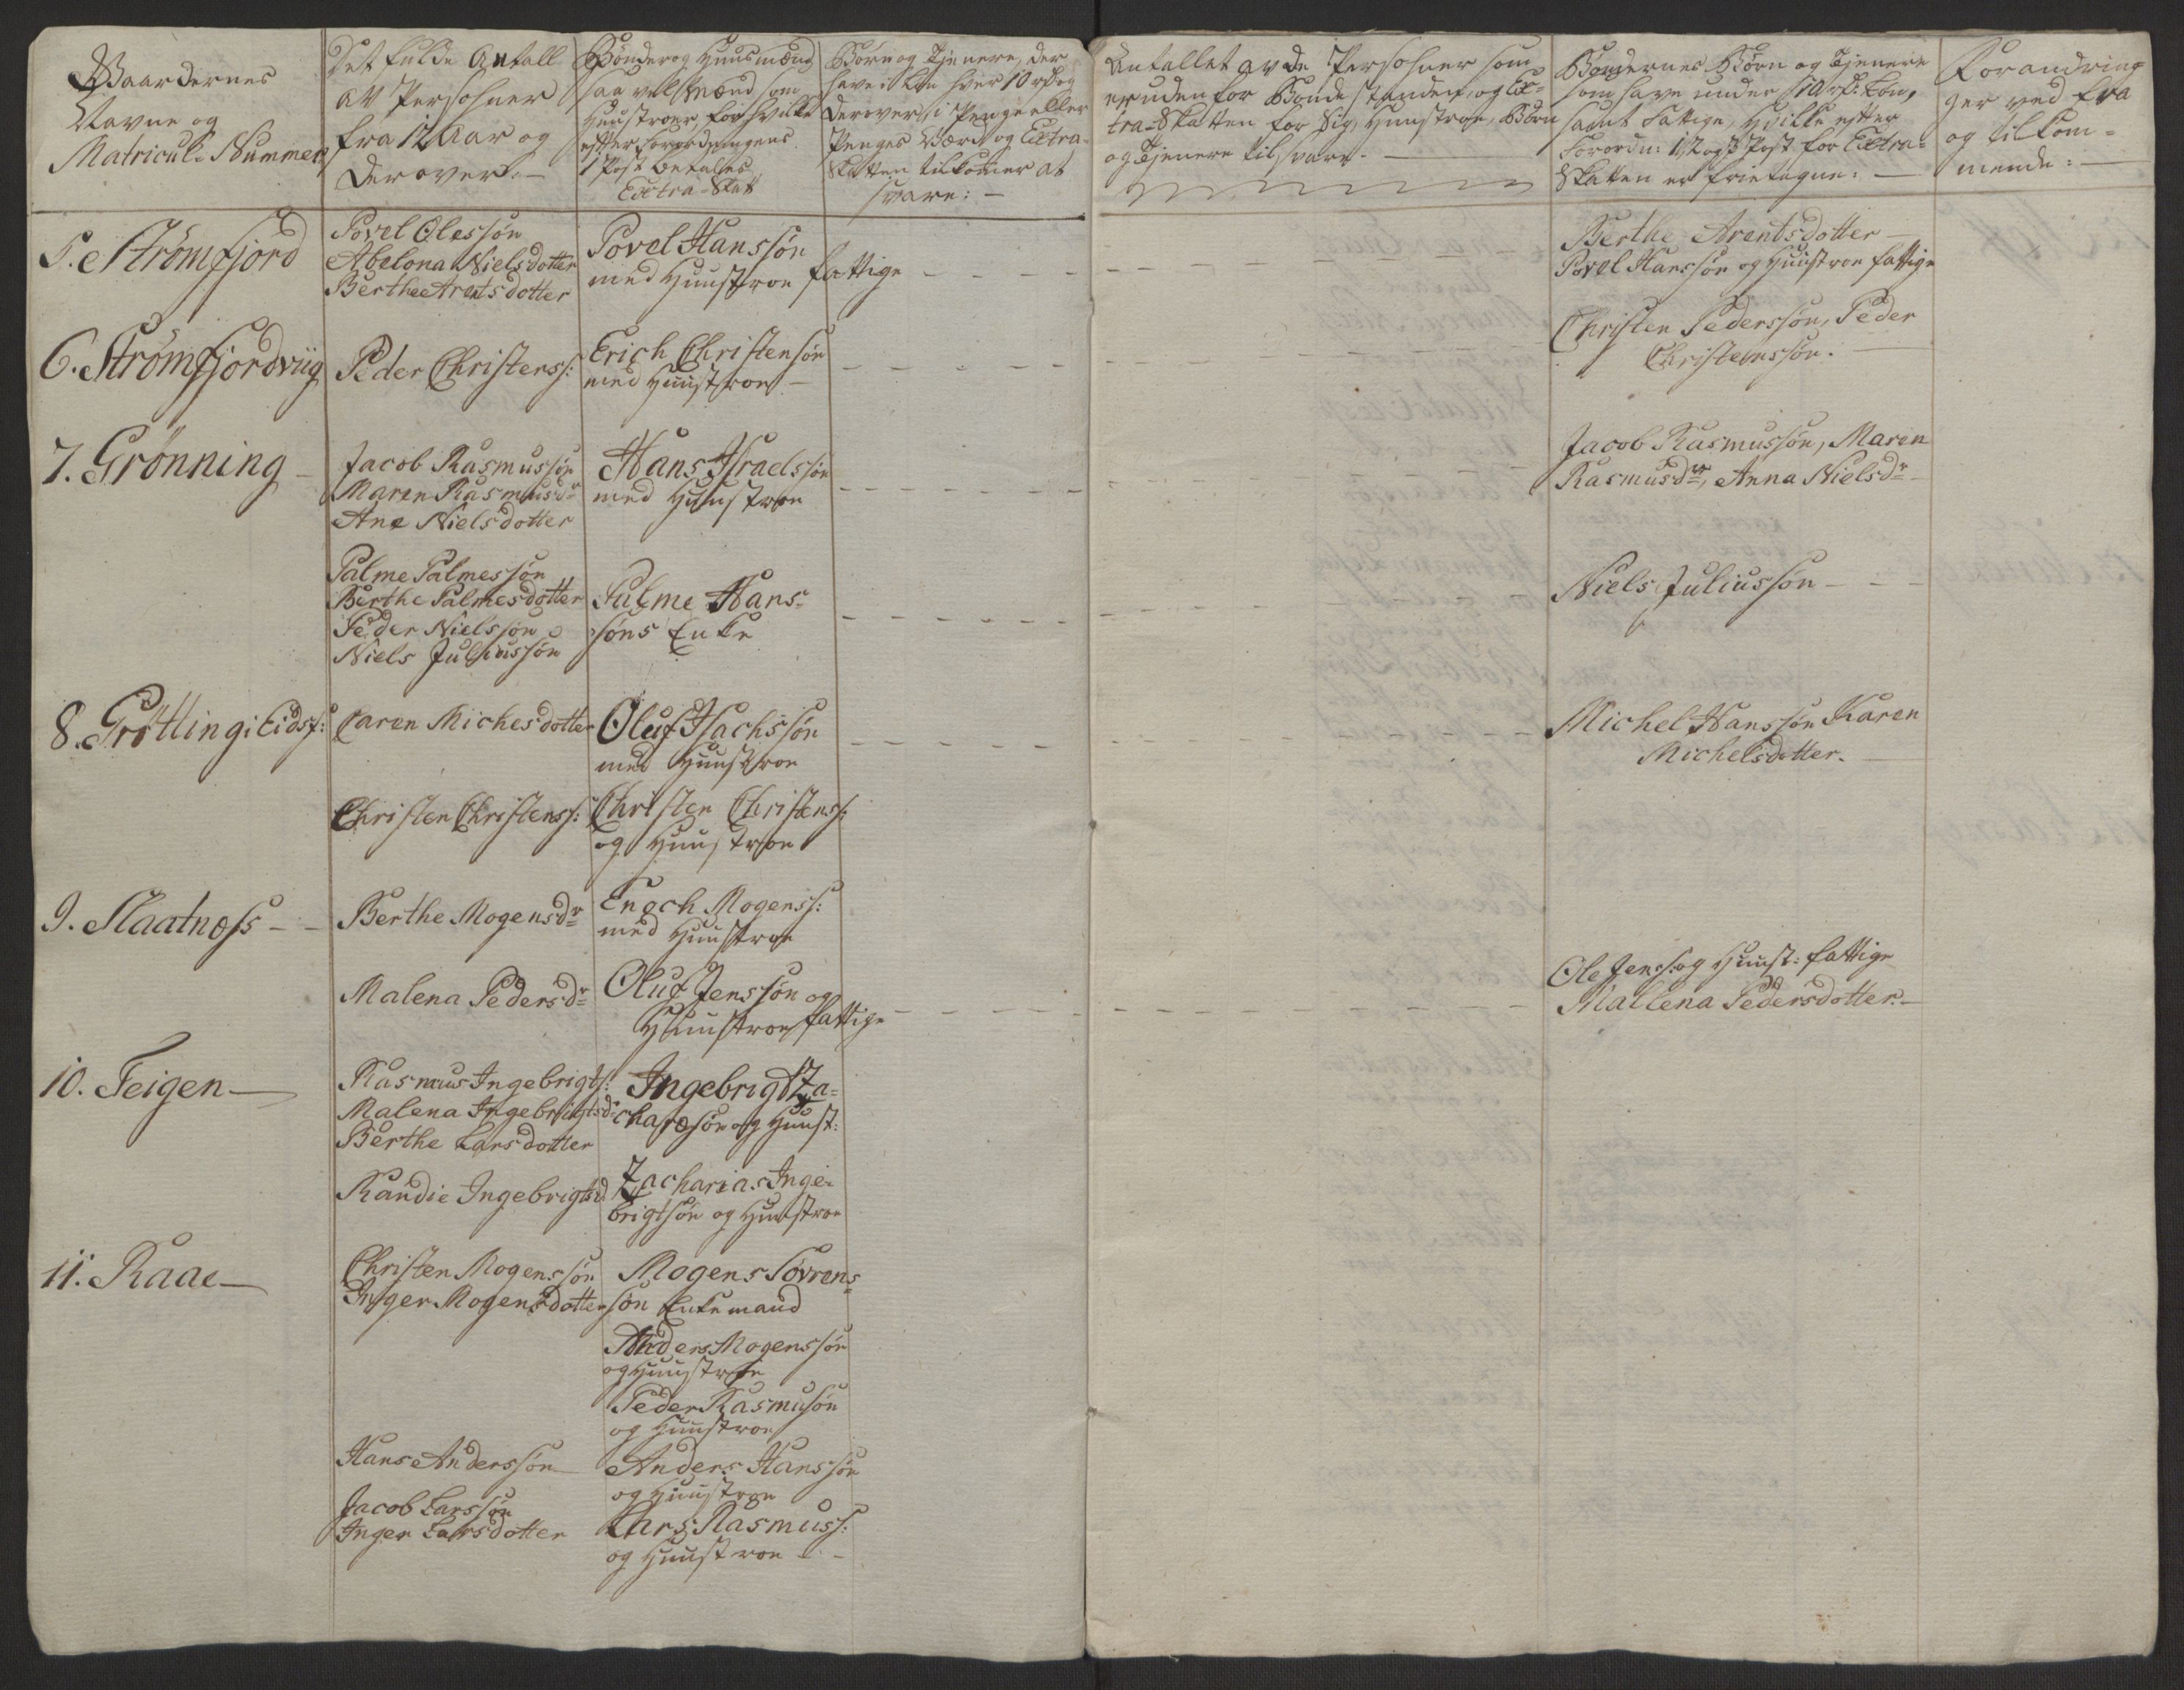 Gaardernes
Navne og
Matricul: Nummer
Det fulde Antall
av Persohner
fra 12 Aar og
derover.—
Bønder og Huusmænd
saavel Mænd som
Huustroer, for hvilke
efter Forordningens
1 Post betales
Extra-Skat
Børn og Tjenere, der
have i Løn hver 10 rdr og
derover i Penge eller
Penges Værd og Extra-
Skatten tilkommer at
svare: —
Antallet av de Persohner som
er uden for Bonde standen, og Ex-
tra-Skatten for Sig, Hustroe, Børn
og Tjenere tilsvare. —
Bøndernes Børn og Tjenere
som have under 10 rdr: Løn,
samt Fattige, hvilke efter
Forordn: 1, 2 og 3 Post for Extra-
Skatten er frietagne: —
Forandrin-
ger ved fra
og tilkom-
mende: —
5. Strømfjord
Povel Olessøn
Abelona Nielsdotter
Berthe Arentsdotter
Povel Hanssøn
med Huustroe fattige
Berthe Arentsdotter —
Povel Hanssøn og Huustroe fattige
6. Strømfjordviig
Peder Christenss:
Erich Christensøn
med Huustroe —
Christen Pederssøn, Peder
Christenssøn. —
7. Grønning —
Jacob Rasmussøn
Maren Rasmusdr
Ane Nielsdotter
Hans Israelssøn
med Huustroe
Jacob Rasmussøn, Maren
Rasmusdr, Anna Nielsdr —
Palme Palmessøn
Berthe Palmesdotter
Peder Nielssøn
Niels Juliussøn
Palme Hans-
søns Enke
Niels Juliussøn — — —
8. Grøtting i Eidsf:
Caren Michesdotter
Oluf Isachssøn
med Huustroe
Michel Hanssøn Karen
Michelsdotter. —
Christen Christenss:
Christen Christenss:
og Huustroe
9. Slaatnæss — —
Berthe Mogensdr
Enoch Mogenss:
med Huustroe
Malena Pedersdr
Oluf Jenssøn og
Huustroe fattige
Ole Jenss: og Huust: fattige
Mallena Pedersdotter. —
10. Teigen —
Rasmus Ingebrigts:
Malena Ingebrigtsdr
Berthe Larsdotter
Ingebrigt Za-
chasøn og Huust:
Randie Ingebrigtsd
Zacharias Inge-
brigtsøn og Huustroe
11. Raae —
Christen Mogenssøn
Inger Mogensdotter
Mogens Sovrens-
søn Enkemand
Anders Mogenssøn
og Huustroe
Peder Rasmusøn
og Huustroe
Hans Anderssøn —
Anders Hanssøn
og Huustroe
Jacob Larssøn
Inger Larsdotter
Lars Rasmuss:
og Huustroe — —